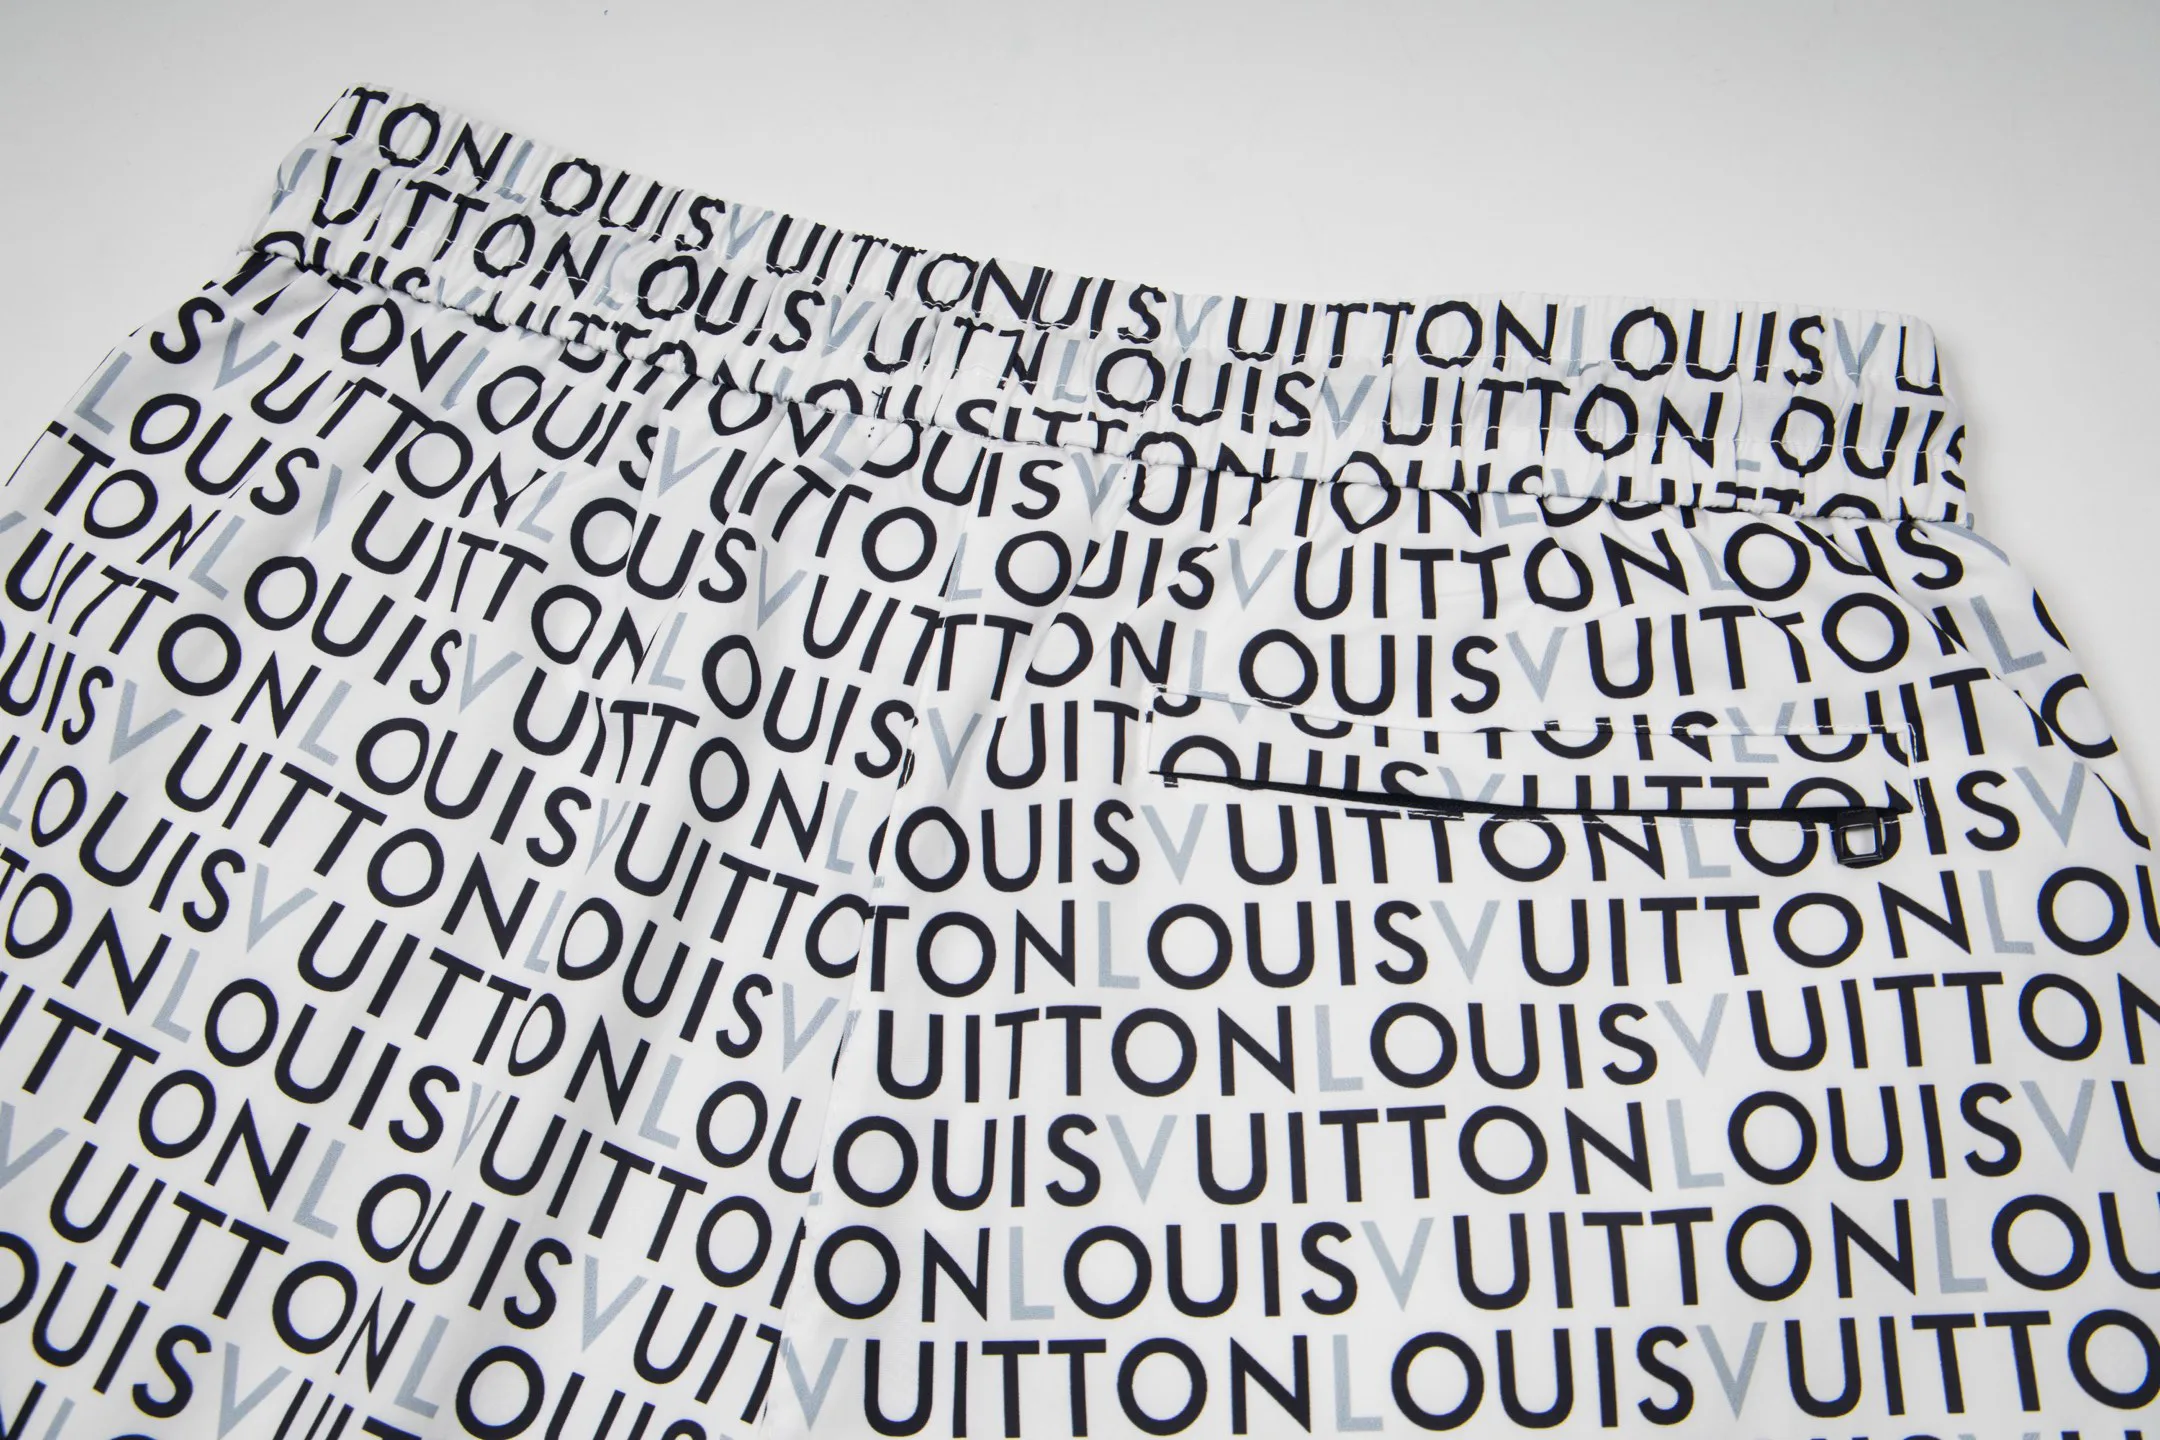 TONLOUISVUITTONUISVUITTONLOUISVU
VUITTONLOUISVUITNLOUISVUITTONLOUIS
SVUITTONLOUISVUITTOLOUISVUITTONLOUIS
LOUISVUITTONLOUISVUITTTONLOUISVUITTONL
TTONLOUISVUITTONLOUISVUIT
VUITTONLOUISVUITTONLOUISVUITTONLOUISV
OUISVUITTONLOUISVUITTOTONLOUISVUITTONLOU
LOUISVUITTONLOUISVUITTONLOUISVUITTON
TTONLOUISVUITTONLOUOUISVUITTONLOUISVU
UITTONLOUISVUITTONONLOUISVUITTONLOU
VUITTONLOUISVUITVUITTONLOUISVUITTO
OUISVUITTONLOUIS